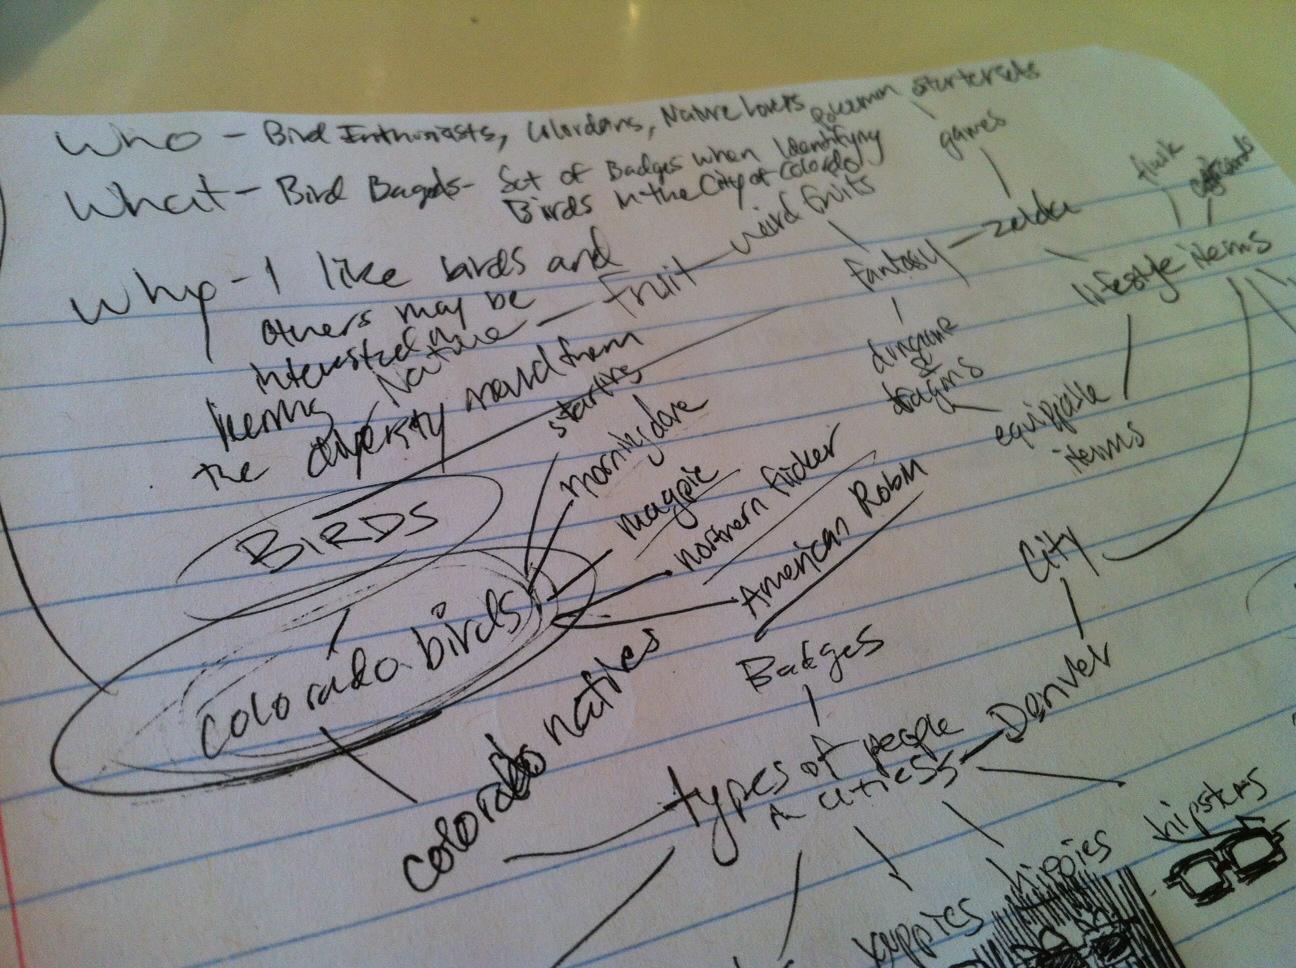 Who - Bird Enthusiasts, Colordans, Nature lovers
Pokemon starter sets
What - Bird Bagds - Set of Badges when Identifying
Birds In the City of Colorado
Why - I like birds and
others may be
interested in
learning
the diversity around them
Nature
Fruit
weird fruits
games
fantasy
zelda
lifestyle items
dungeons
&
dragons
equippable
items
BIRDS
Colorado birds
starling
morning dove
magpie
northern flicker
American Robin
colorado natives
City
Denver
Badges
types of people
in citiess
yuppies
hippies
hipsters